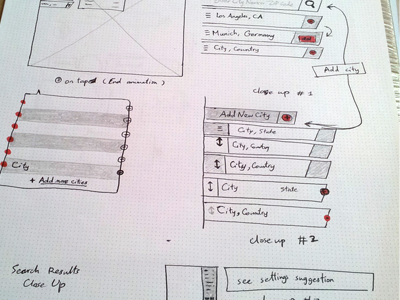 Los Angeles, CA
Munich, Germany
City, Country
Add city
on tapped (End animation)
close up #1
Add New City
City, State
City, Country
City, Country
City State
City, Country
City
+ Add more cities
close up #2
Search Results
Close Up
see setting suggestion